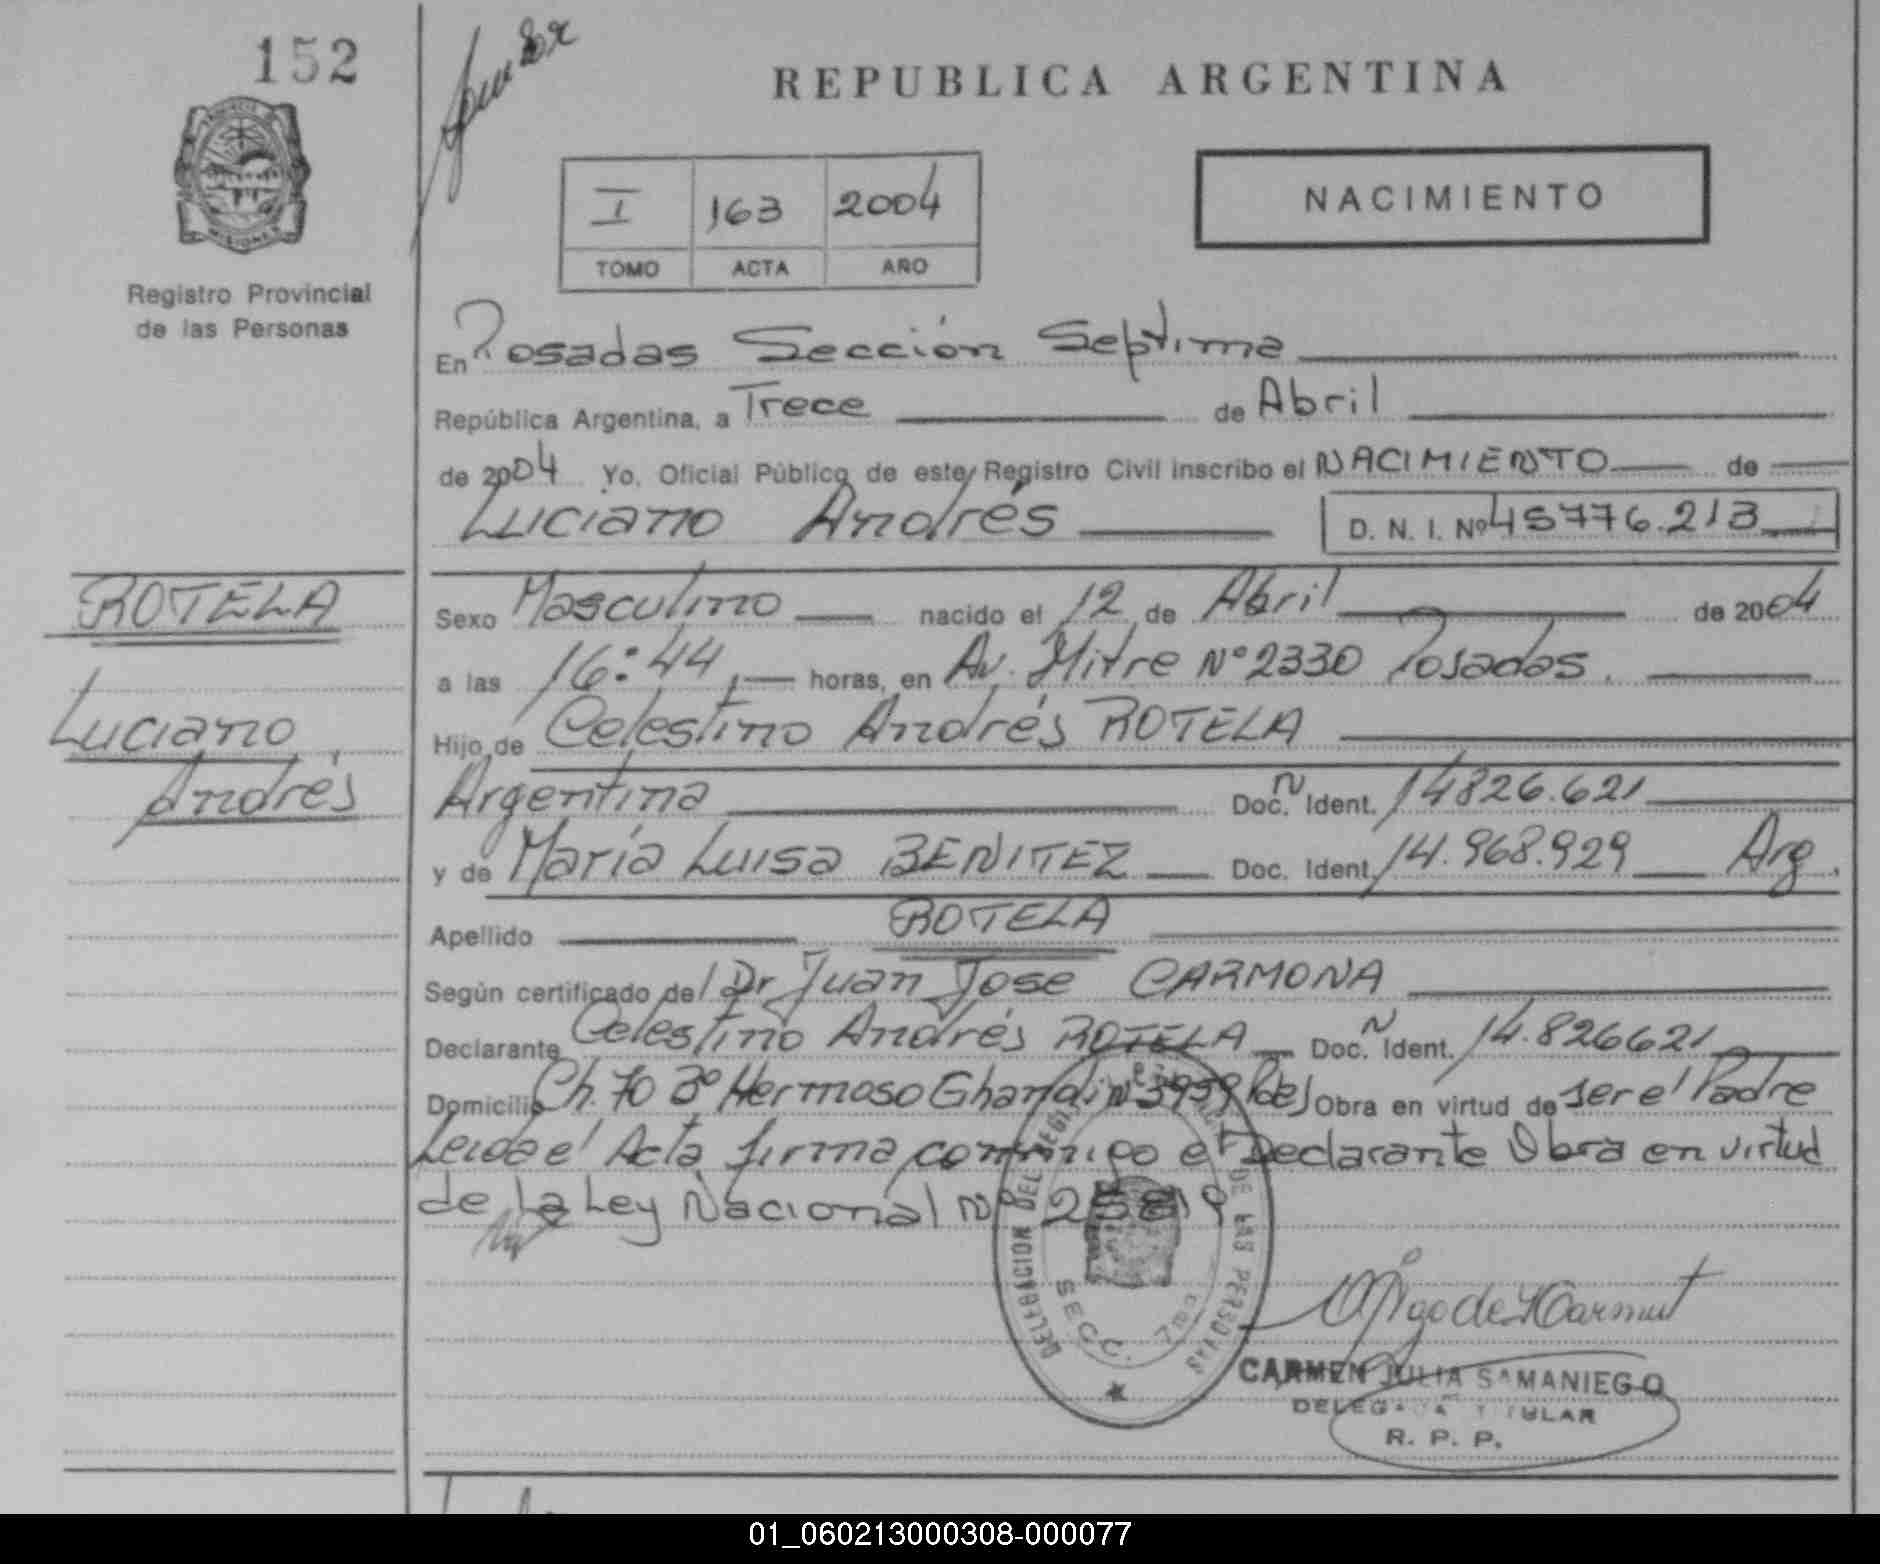 152
REPUBLICA ARGENTINA
PROVINCIA DE MISIONES
Registro Provincial
de las Personas
I 163 2004
TOMO ACTA AÑO
NACIMIENTO
En Posadas Sección Septima
República Argentina, a Trece de Abril
de 2004 Yo, Oficial Público de este Registro Civil inscribo el NACIMIENTO de
Luciano Andrés D. N. I. Nº 45776.213
ROTELA
Luciano
Andrés
Sexo Masculino nacido el 12 de Abril de 2004
a las 16:44 horas, en Av. Mitre Nº 2330 Posadas.
Hijo de Celestino Andrés ROTELA
Argentina Doc. Ident. 14826.621
y de María Luisa BENITEZ Doc. Ident. 14.968.929 Arg.
Apellido ROTELA
Según certificado del Dr Juan Jose CARMONA
Declarante Celestino Andrés ROTELA Doc. Ident. 14.826621
Domicilio Ch. 70 Bº Hermoso Ghandi Nº 3959 Pdas Obra en virtud de ser el Padre
Leida el Acta firma conmigo el Declarante Obra en virtud
de La Ley Nacional Nº
DELEGACION DEL REGISTRO DE LAS PERSONAS
SECC. 7ma
CARMEN JULIA SAMANIEGO
DELEGADA TITULAR
R. P. P.
01_060213000308-000077